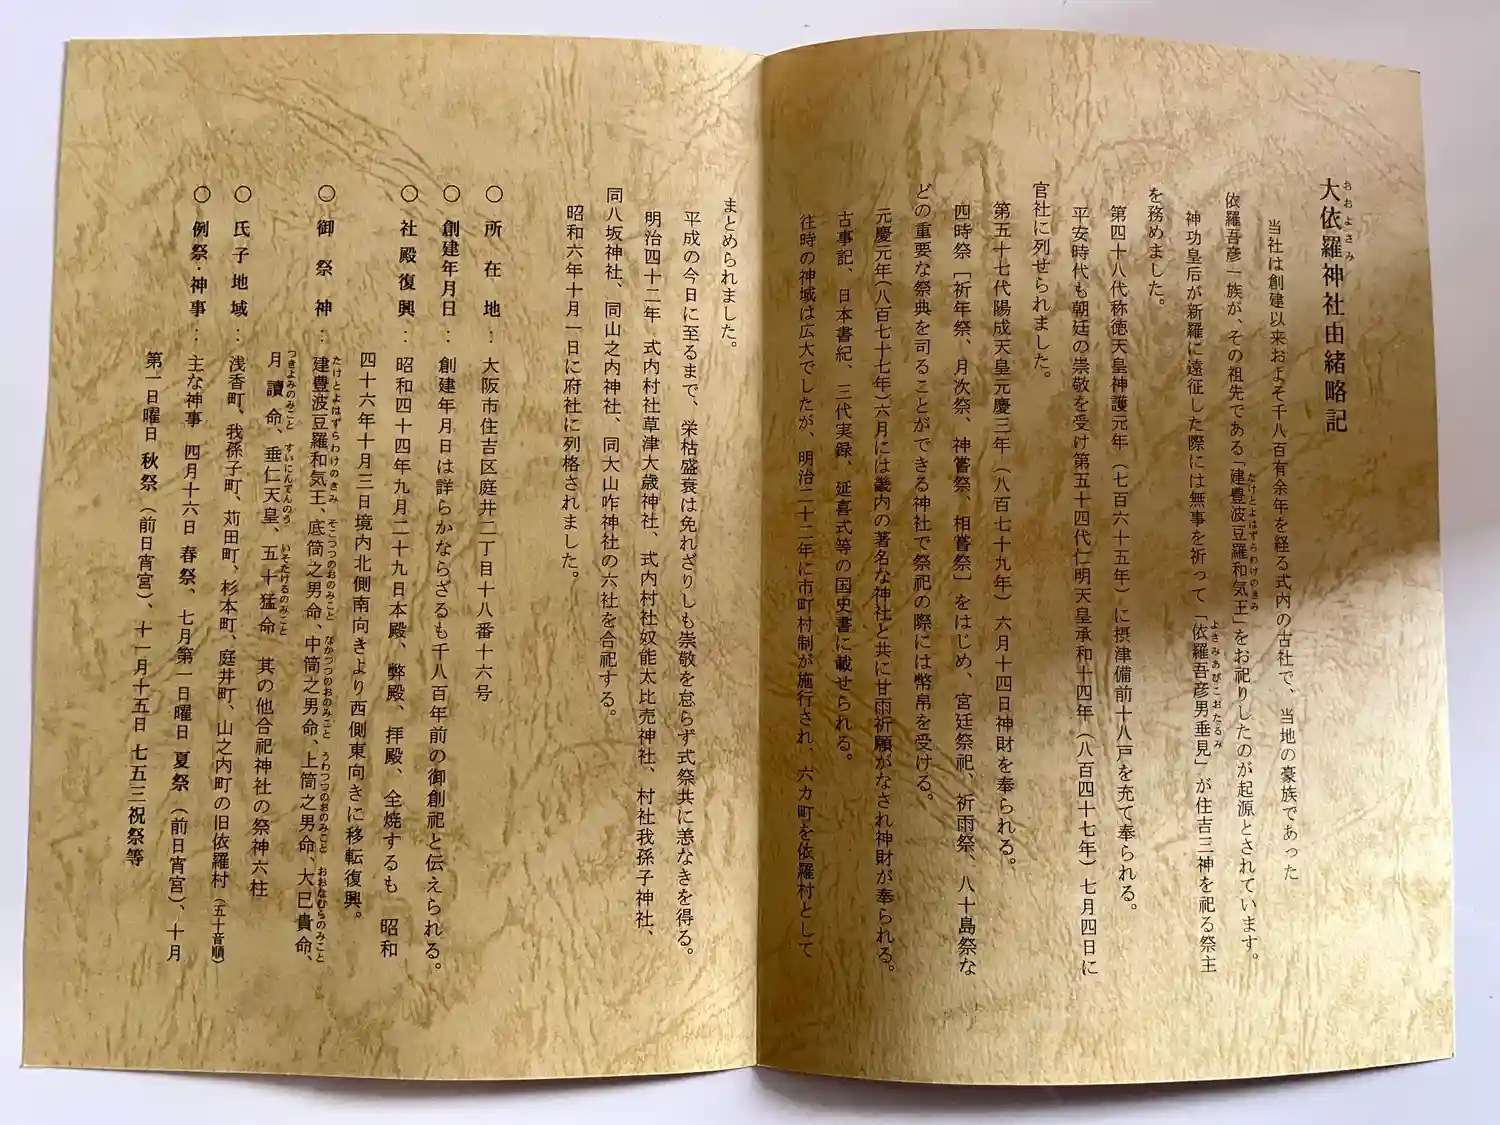 大依羅神社由緒略記
おおよさみ
当社は創建以来およそ千八百有余年を経る式内の古社で、当地の豪族であった
依羅吾彦一族が、その祖先である「建豊波豆羅和気王」をお祀りしたのが起源とされています。
たけとよはずらわけのきみ
神功皇后が新羅に遠征した際には無事を祈って「依羅吾彦男垂見」が住吉三神を祀る祭主
よさみあびこおたるみ
を務めました。
第四十八代称徳天皇神護元年（七百六十五年）に摂津備前十八戸を充て奉られる。
平安時代も朝廷の崇敬を受け第五十四代仁明天皇承和十四年（八百四十七年）七月四日に
官社に列せられました。
第五十七代陽成天皇元慶三年（八百七十九年）六月十四日神財を奉られる。
四時祭［祈年祭、月次祭、神嘗祭、相嘗祭］をはじめ、宮廷祭祀、祈雨祭、八十島祭な
どの重要な祭典を司ることができる神社で祭祀の際には幣帛を受ける。
元慶元年（八百七十七年）六月には畿内の著名な神社と共に甘雨祈願がなされ神財が奉られる。
古事記、日本書紀、三代実録、延喜式等の国史書に載せられる。
往時の神域は広大でしたが、明治二十二年に市町村制が施行され、六カ町を依羅村として
まとめられました。
平成の今日に至るまで、栄枯盛衰は免れざりしも崇敬を怠らず式祭共に恙なきを得る。
明治四十二年 式内村社草津大歳神社、式内村社奴能太比売神社、村社我孫子神社、
同八坂神社、同山之内神社、同大山咋神社の六社を合祀する。
昭和六年十月一日に府社に列格されました。
○所在地：大阪市住吉区庭井二丁目十八番十六号
○創建年月日：創建年月日は詳らかならざるも千八百年前の御創祀と伝えられる。
○社殿復興：昭和四十四年九月二十九日本殿、弊殿、拝殿、全焼するも 昭和
四十六年十月三日境内北側南向きより西側東向きに移転復興。
○御祭神：建豊波豆羅和気王、底筒之男命、中筒之男命、上筒之男命、大巳貴命、
たけとよはずらわけのきみ そこつつのおのみこと なかつつのおのみこと うわつつのおのみこと おおなむらのみこと
月讀命、垂仁天皇、五十猛命 其の他合祀神社の祭神六柱
つきよみのみこと すいにんてんのう いそたけるのみこと
○氏子地域：浅香町、我孫子町、苅田町、杉本町、庭井町、山之内町の旧依羅村（五十音順）
○例祭・神事：主な神事 四月十六日 春祭、七月第一日曜日 夏祭（前日宵宮）、十月
第一日曜日 秋祭（前日宵宮）、十一月十五日 七五三祝祭等